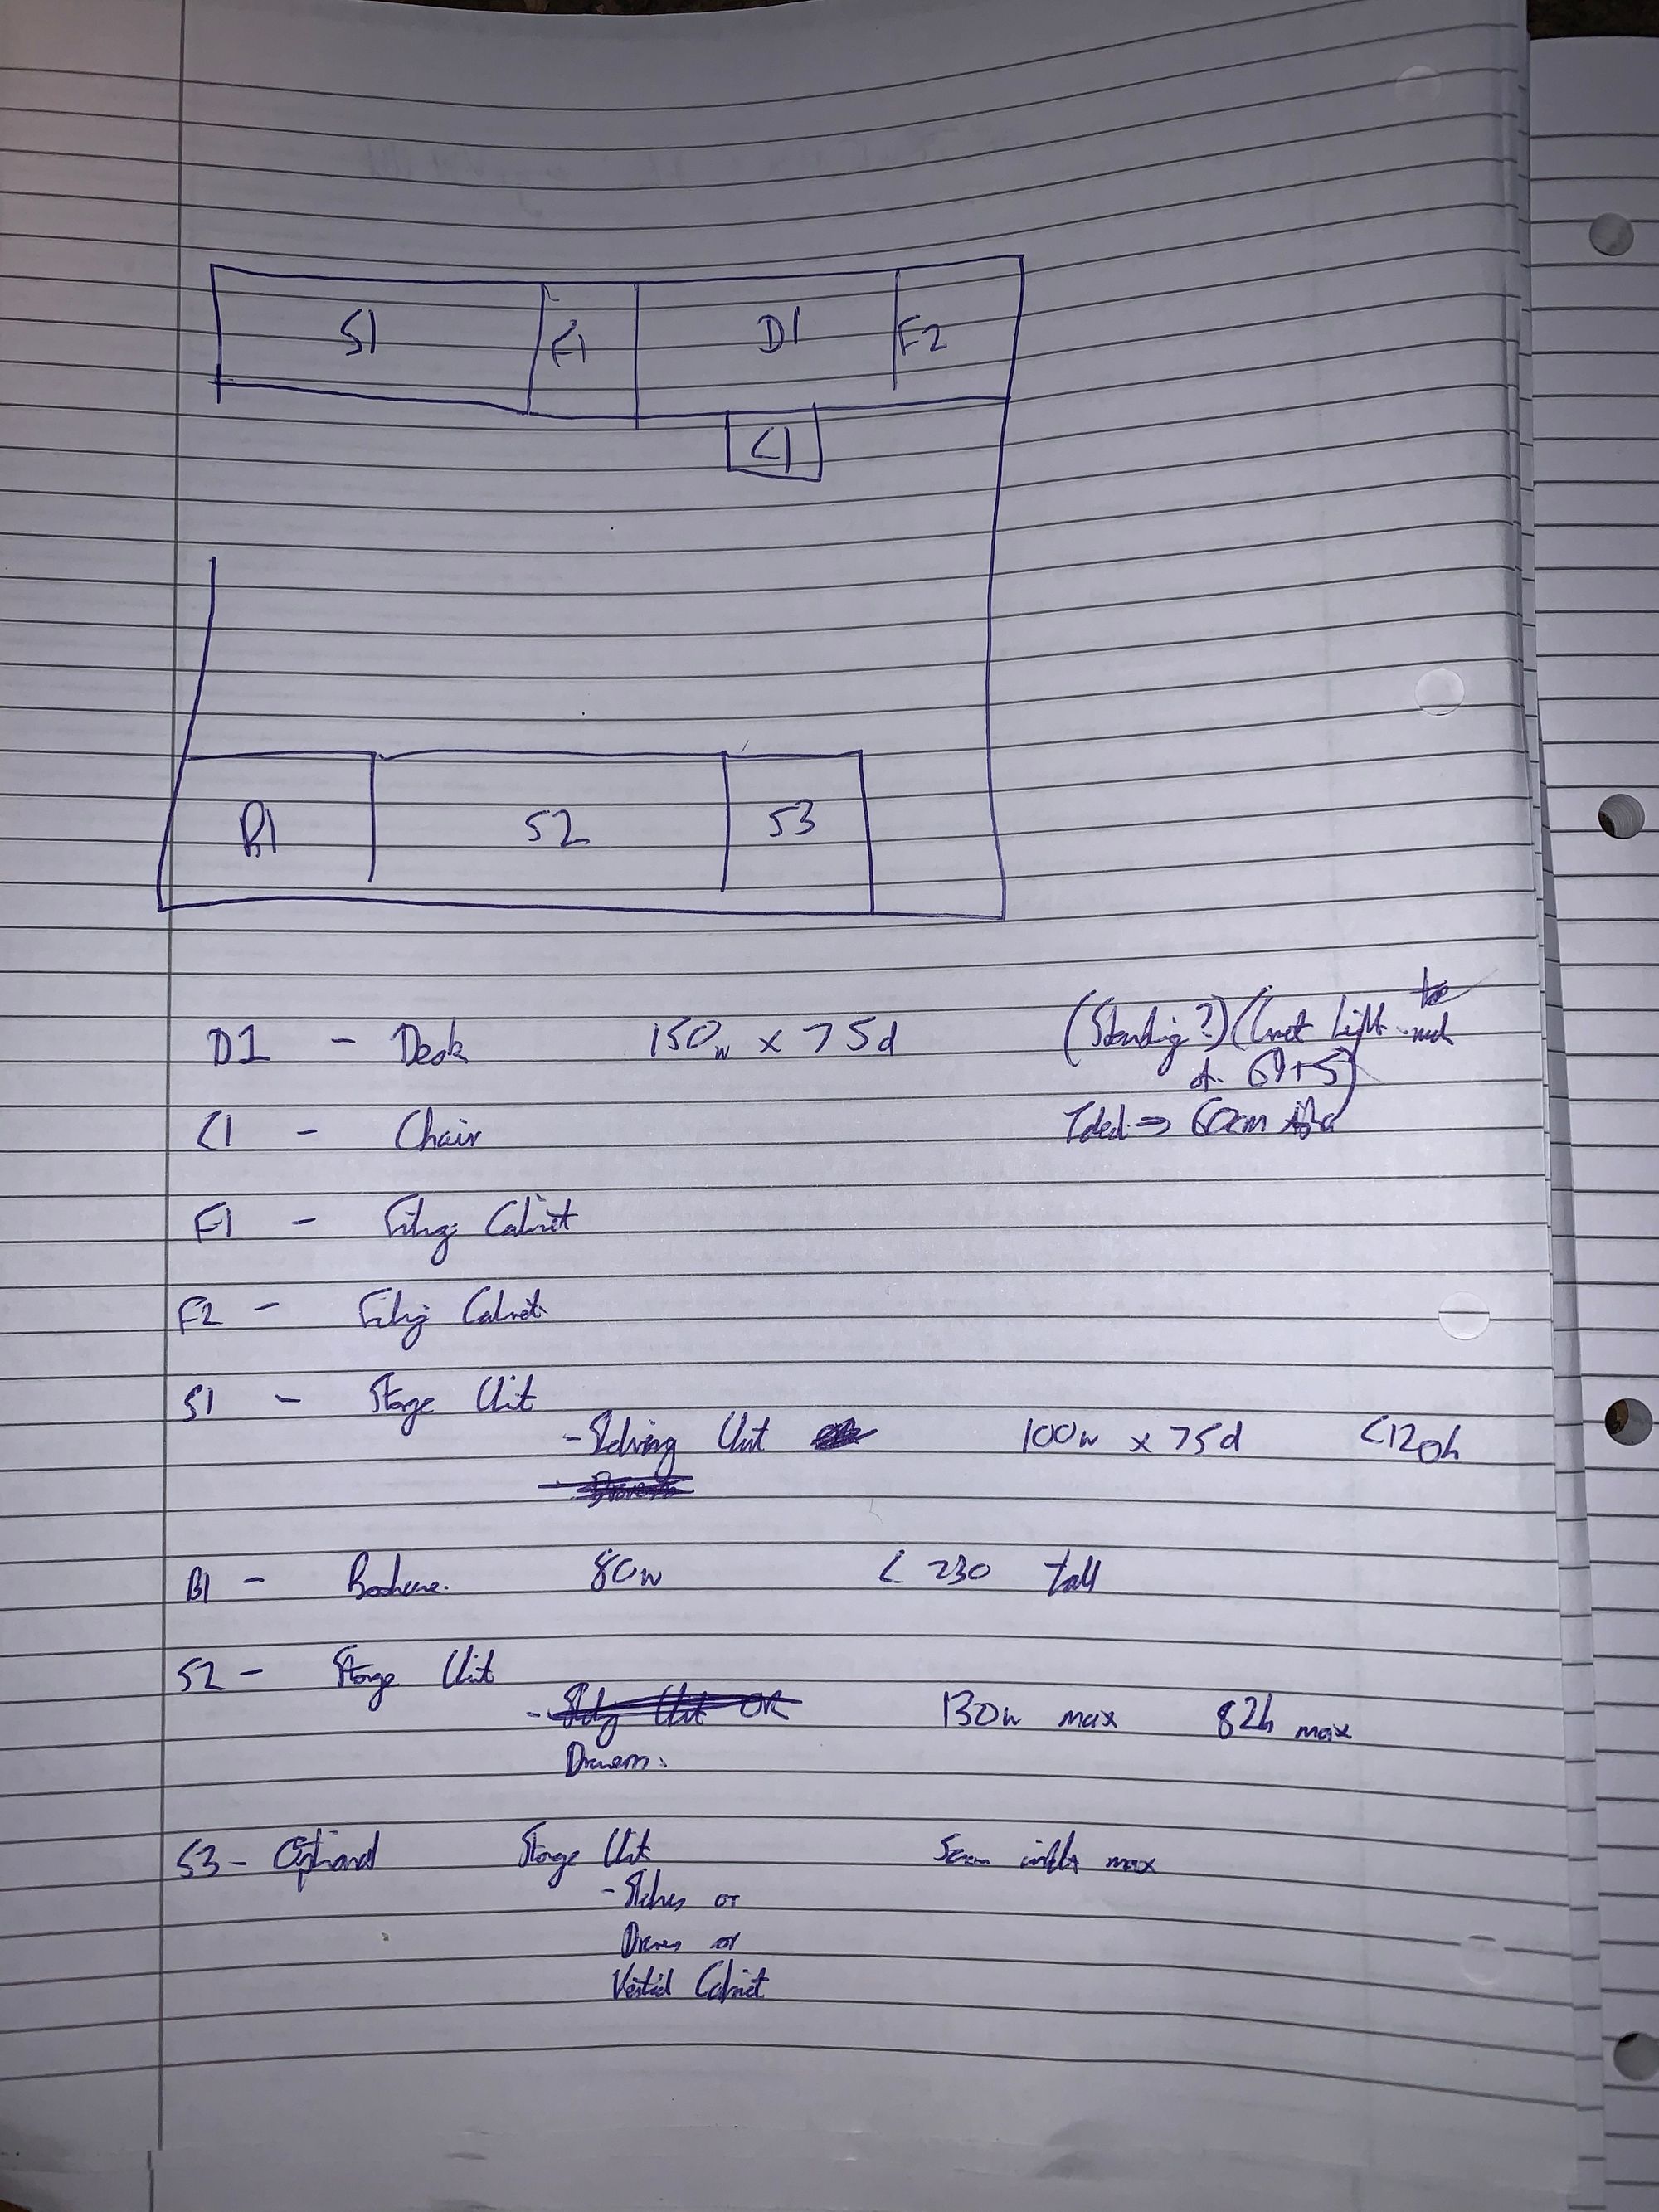 S1 F1 D1 F2
C1
B1 S2 S3
D1 - Desk 150w x 75d (Standing?) (
C1 - Chair
F1 - Filing Cabinet
F2 - Filing Cabinet
S1 - Storage Unit
- Shelving Unit 100w x 75d <120h
B1 - Bookcase. 80w < 230 tall
S2 - Storage Unit
- Shelving Unit OR 130w max 82h max
Drawers.
S3 - Optional Storage Unit max
- Shelves or
Drawers or
Vertical Cabinet